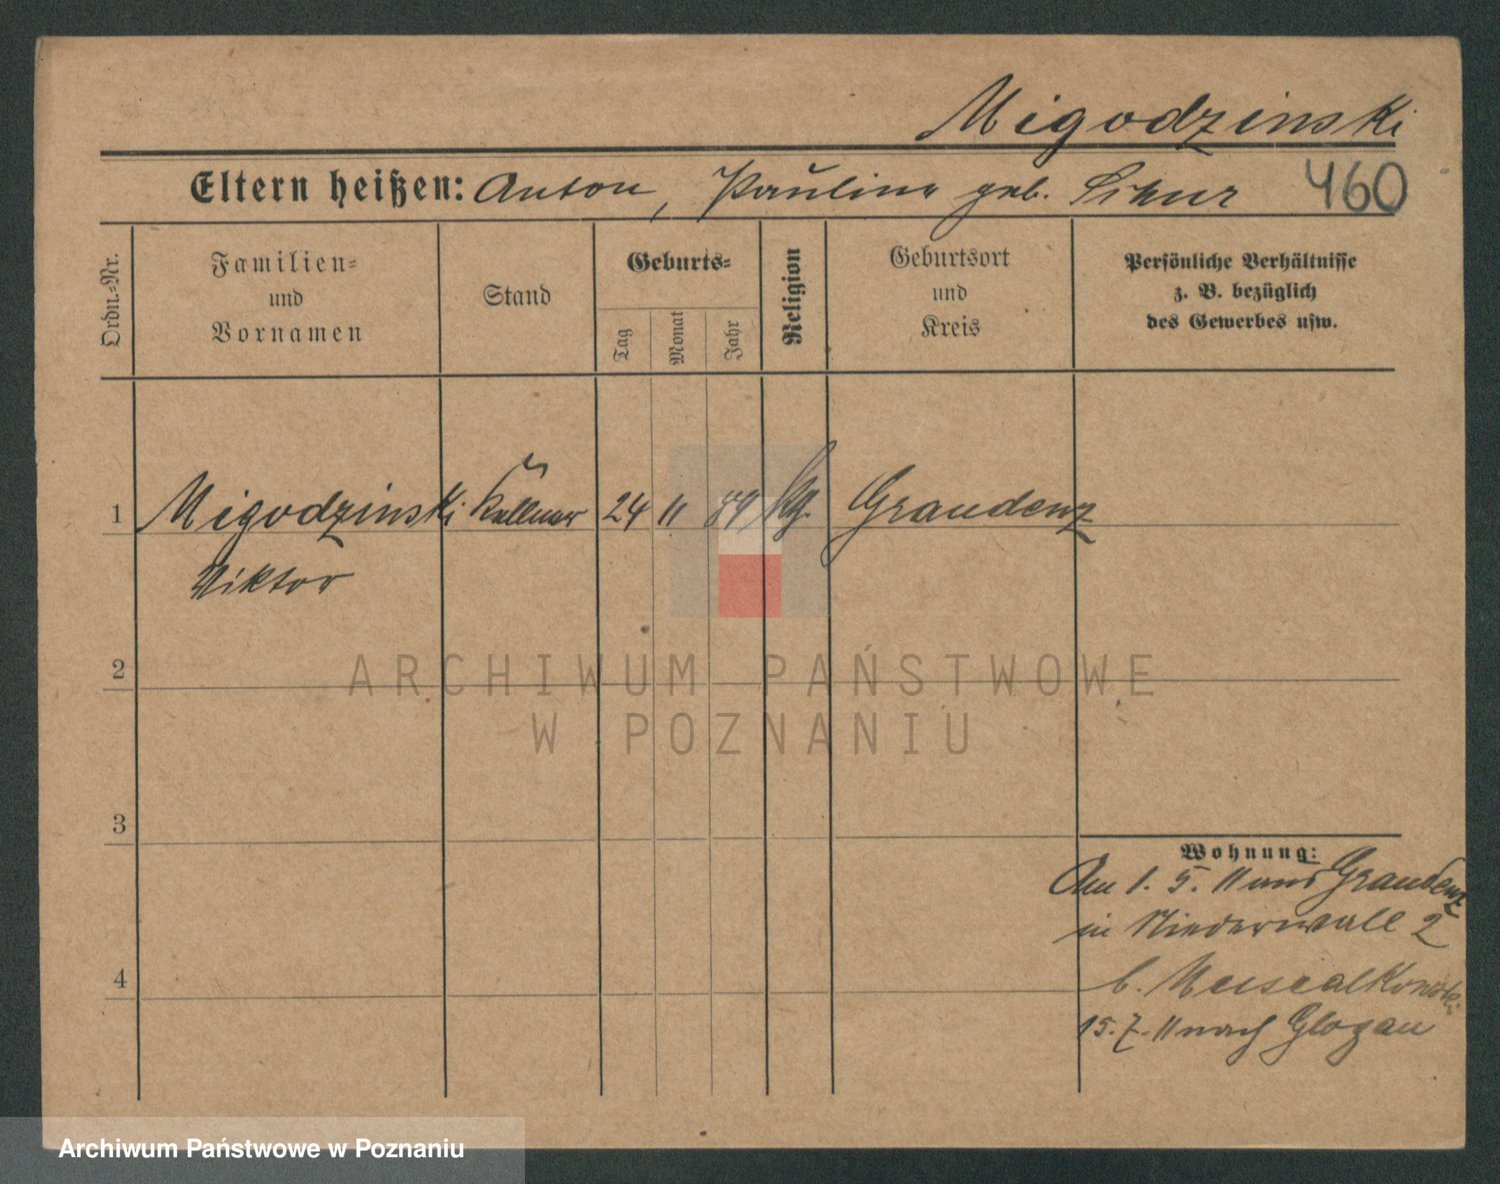 Migodzinski
Eltern heißen: Anton, Pauline geb. 460
Ordn.-Nr.
Familien-
und
Vornamen
Stand
Geburts-
Tag
Monat
Jahr
Religion
Geburtsort
und
Kreis
Persönliche Verhältnisse
z. B. bezüglich
des Gewerbes usw.
1 Migodzinski Kellner 24 11 Graudenz
Viktor
2
3
4
Wohnung:
Am 1. 5. 11 aus Graudenz
in Niederwall 2
b.
15. 7. 11 nach Glogau
ARCHIWUM PAŃSTWOWE
W POZNANIU
Archiwum Państwowe w Poznaniu